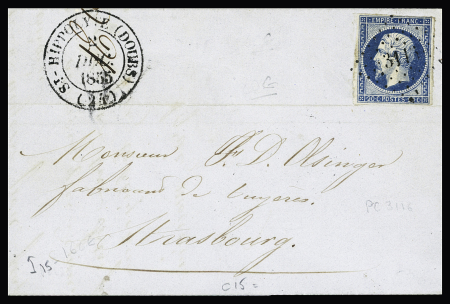 ST-HIPPOLYTE (DOUBS)
1855
(24)
EMPIRE FRANC.
20 C. POSTES 20 C.
Monsieur F. D. Olsinger
fabricant de
Strasbourg.
PC 3116
I 15
C15 =